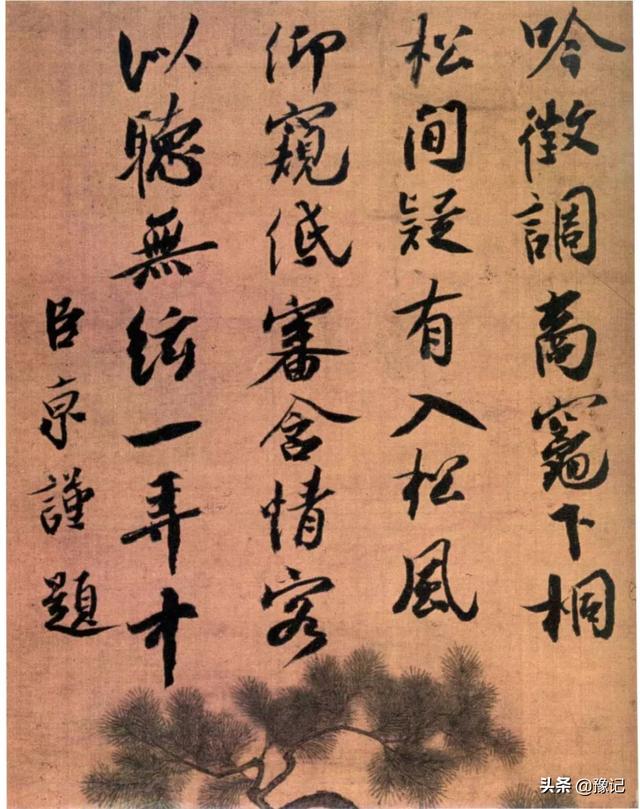 吟徵調商竈下桐
松間疑有入松風
仰窺低審含情客
似聽無絃一弄中
臣京謹題
头条 @豫记